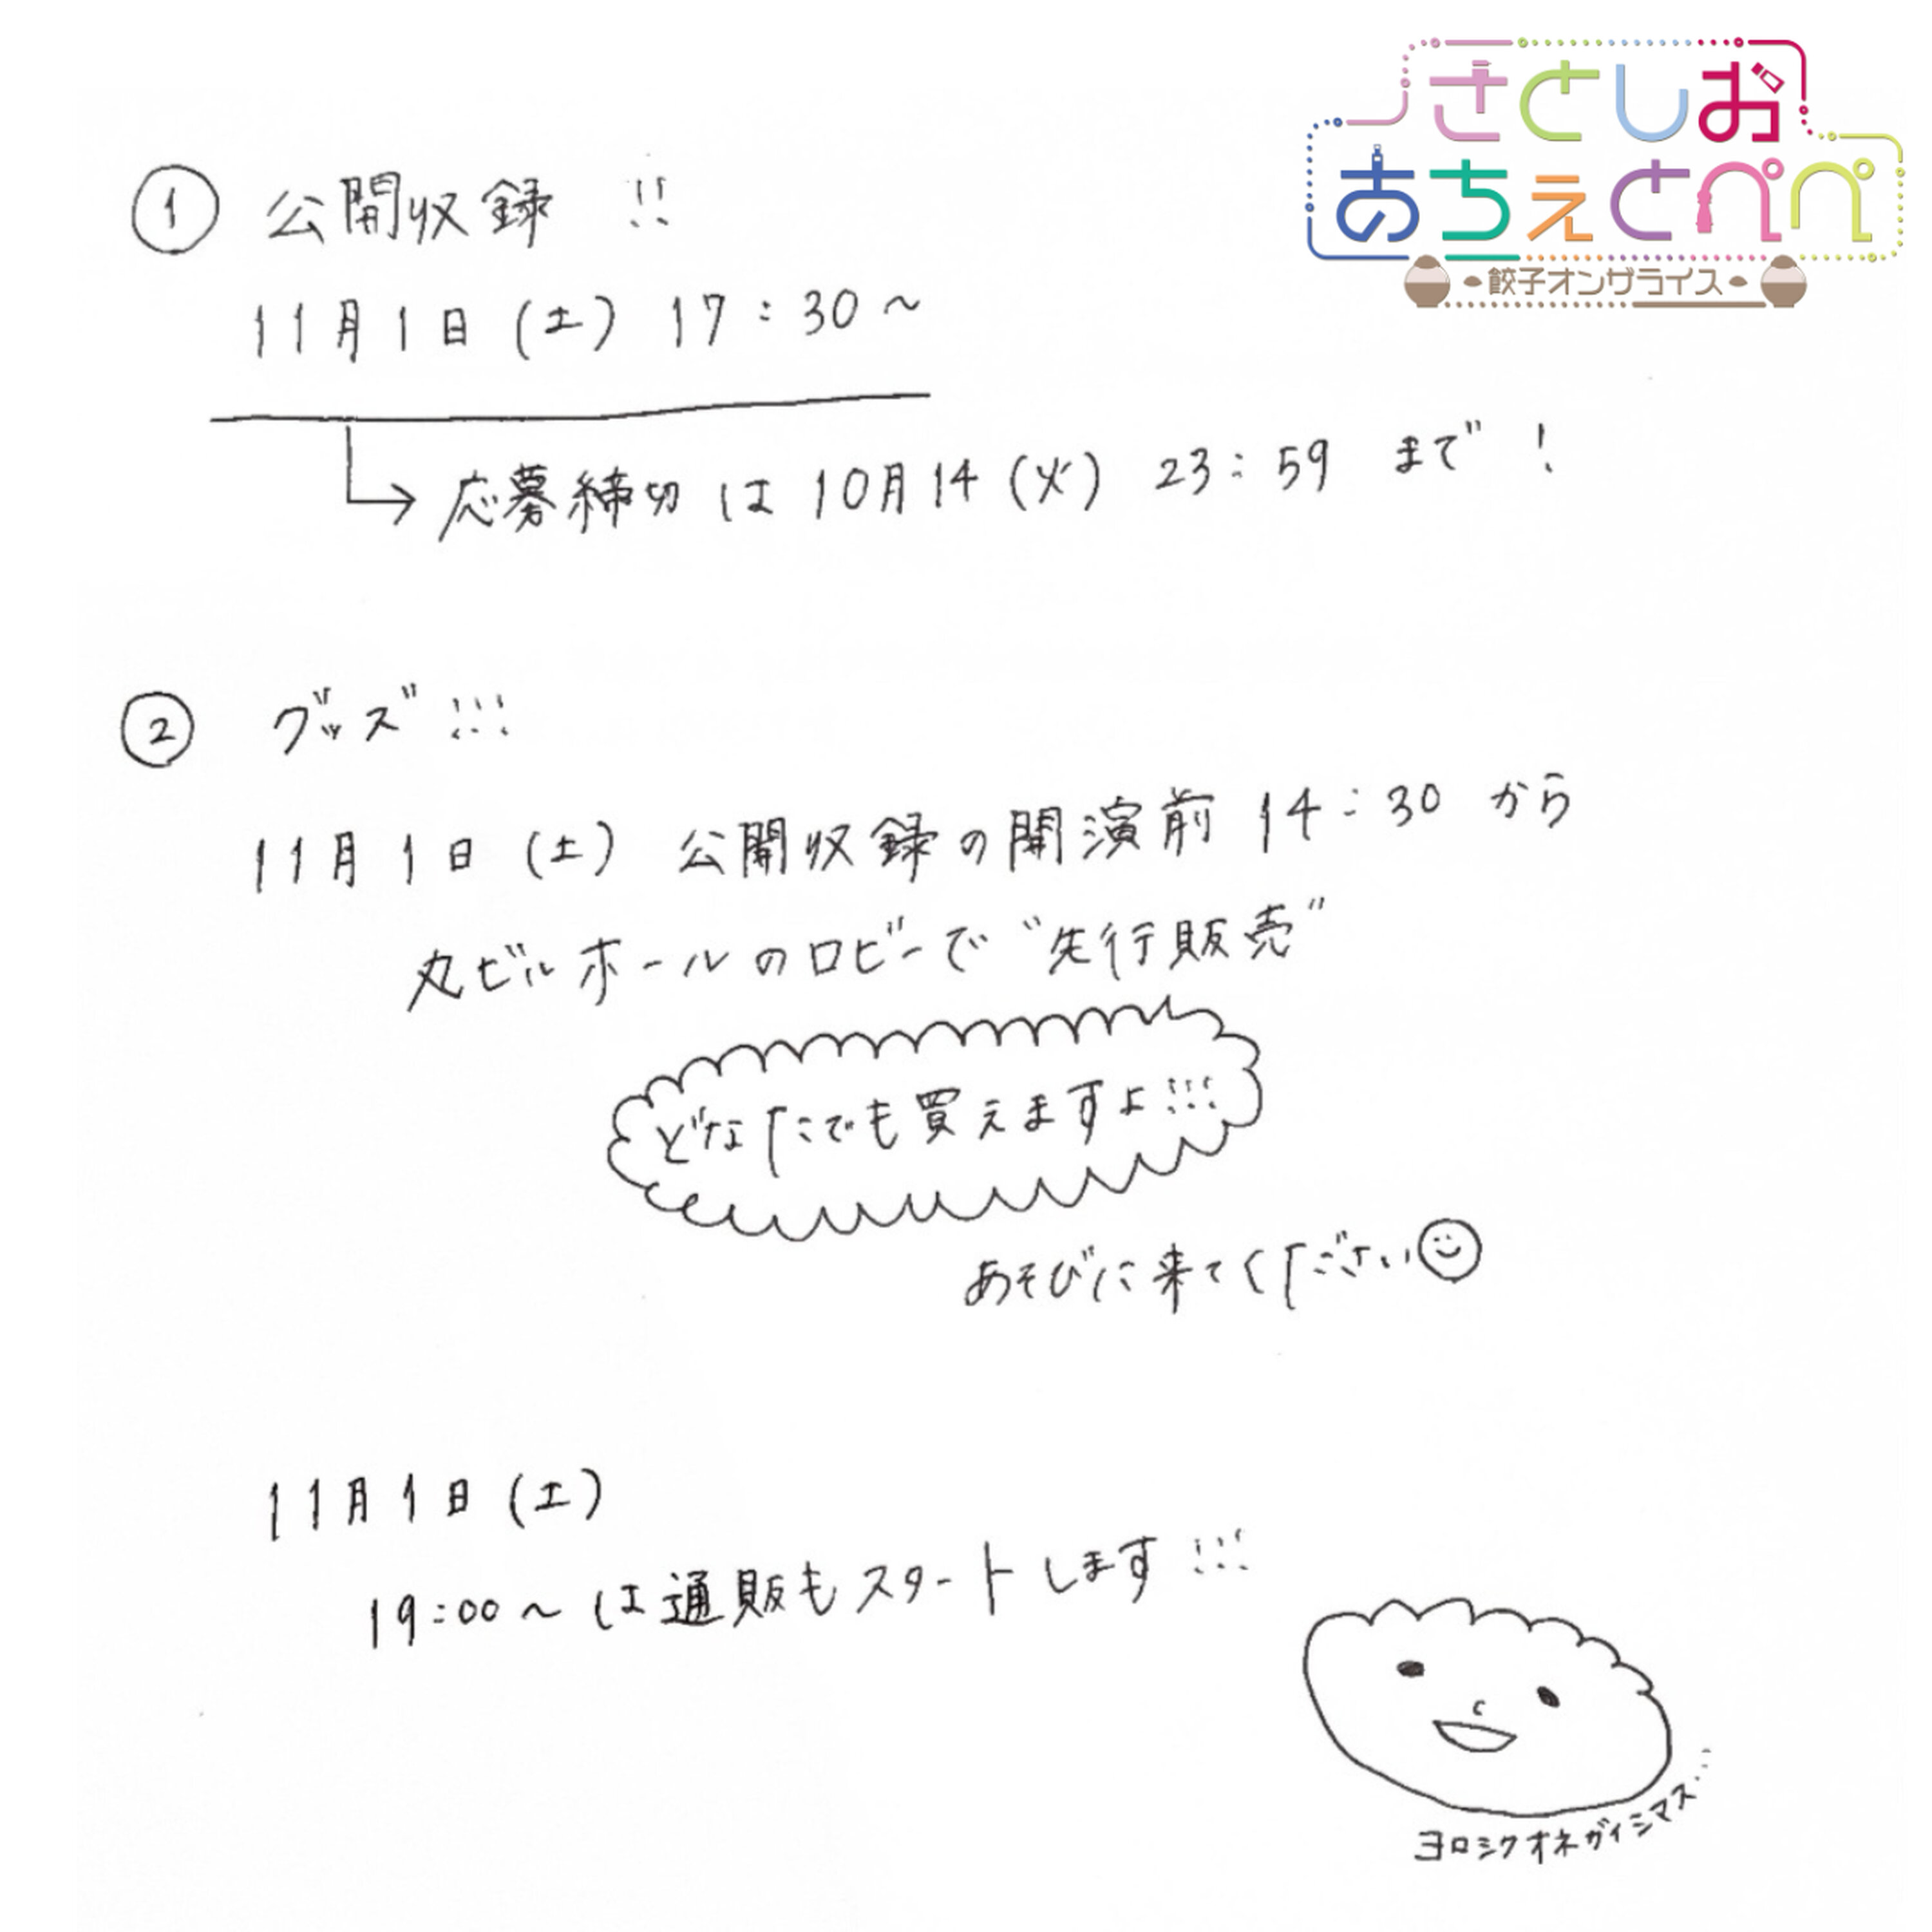 さとしお
あちぇとぺぺ
餃子オンザライス
① 公開収録 !!
11月1日(土) 17:30~
→応募締切は10月14(火) 23:59 まで!
② グッズ!!!
11月1日(土) 公開収録の開演前 14:30 から
丸ビルホールのロビーで"先行販売"
どなたでも買えますよ!!!
あそびに来てください
11月1日(土)
19:00~は通販もスタートします!!!
ヨロシクオネガイシマス…